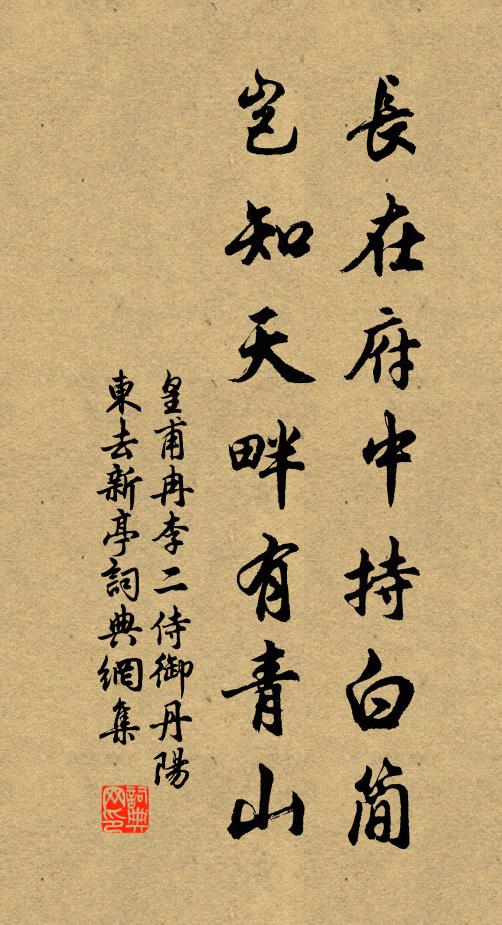 長在府中持白简
岂知天畔有青山
皇甫冉李二侍御丹陽
東去新亭詞典網集
詞典网印